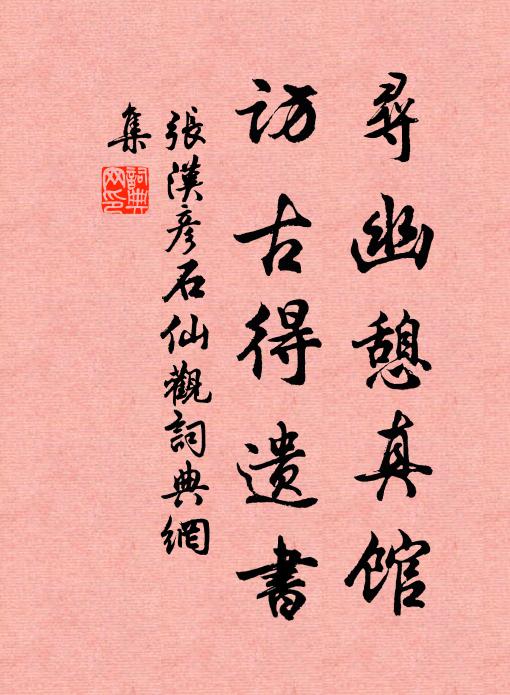 尋幽憩真館
訪古得遺書
張漢彦石仙觀詞典網
集
詞典網印